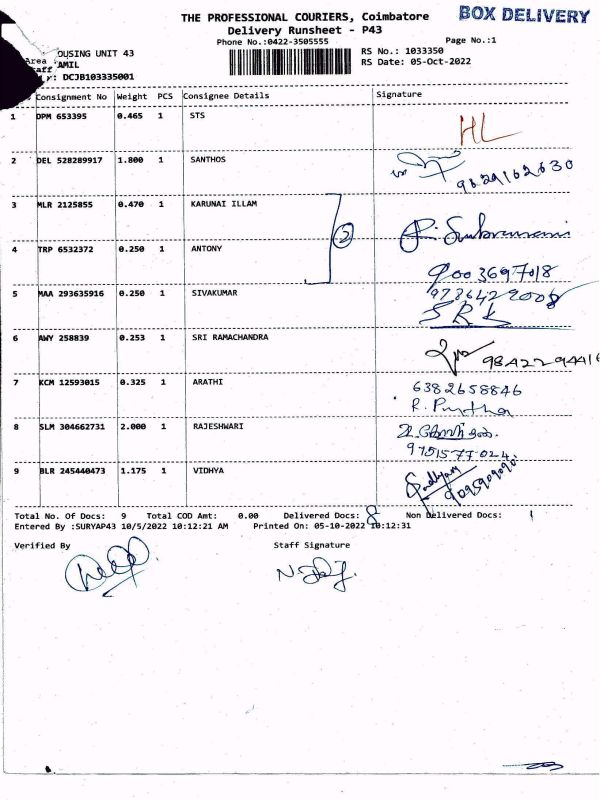 THE PROFESSIONAL COURIERS, Coimbatore
BOX DELIVERY
Delivery Runsheet - P43
Phone No.:0422-3505555
Page No.:1
RS No.: 1033350
RS Date: 05-Oct-2022
Area OUSING UNIT 43
taff AMIL
y: DCJB103335001
Consignment No Weight PCS Consignee Details Signature
1 DPM 653395 0.465 1 STS HL
2 DEL 528289917 1.800 1 SANTHOS
9629162630
3 MLR 2125855 0.470 1 KARUNAI ILLAM
2
4 TRP 6532372 0.250 1 ANTONY
9003697018
5 MAA 293635916 0.250 1 SIVAKUMAR 9786429008
SRK
6 AWY 258839 0.253 1 SRI RAMACHANDRA
984229441
7 KCM 12593015 0.325 1 ARATHI 6382658846
8 SLM 304662731 2.000 1 RAJESHWARI
9751577024
9 BLR 245440473 1.175 1 VIDHYA
Total No. Of Docs: 9 Total COD Amt: 0.00 Delivered Docs: 8 Non Delivered Docs: 1
Entered By :SURYAP43 10/5/2022 10:12:21 AM Printed On: 05-10-2022 10:12:31
Verified By Staff Signature